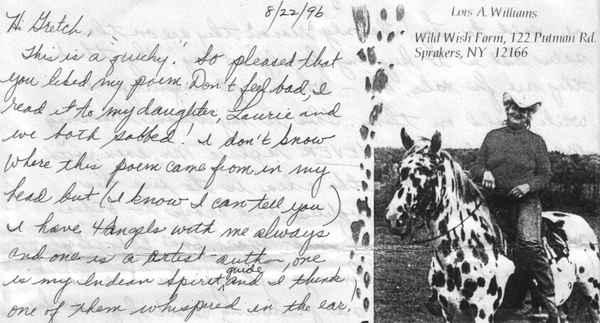 8/22/96
Hi Gretch
This is a "quicky." So pleased that
you liked my poem. Don't feel bad, I
read it to my daughter, Laurie and
we both sobbed! I don't know
where this poem came from in my
head but (I know I can tell you)
I have 4 angels with me always
and one is a artist author, one
is my Indean Spirit guide and I think
one of them whispered in the ear,
Lois A. Williams
Wild Wish Farm, 122 Putman Rd.
Sprakers, NY 12166